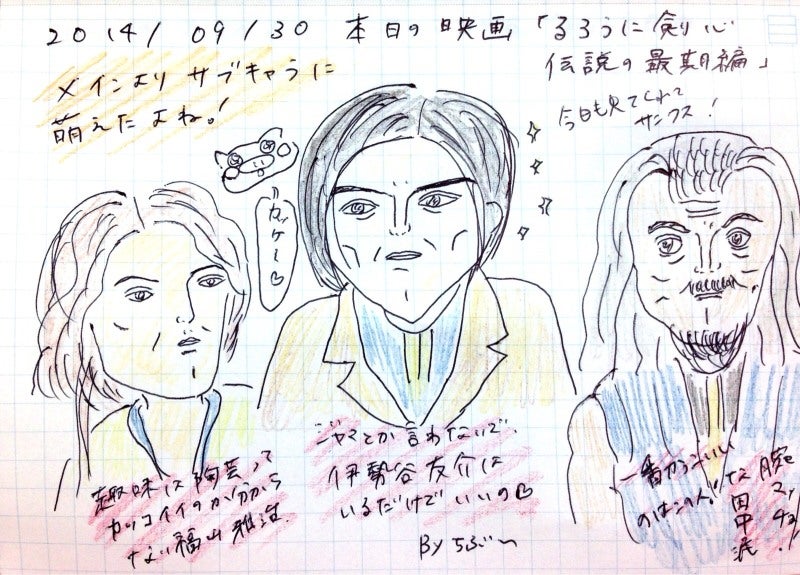 2014/09/30 本日の映画「るろうに剣心
伝説の最期編」
メインより サブキャラに
萌えたよね。!
今日も見てくれて
サンクス!
カッケー♡
趣味は陶芸って
カッコイイのか分から
ない福山雅治
ジャマとか言わないで、
伊勢谷友介は
いるだけでいいの♡
By ちぶ〜
一番かっこいい
のはこの人!な
田中泯